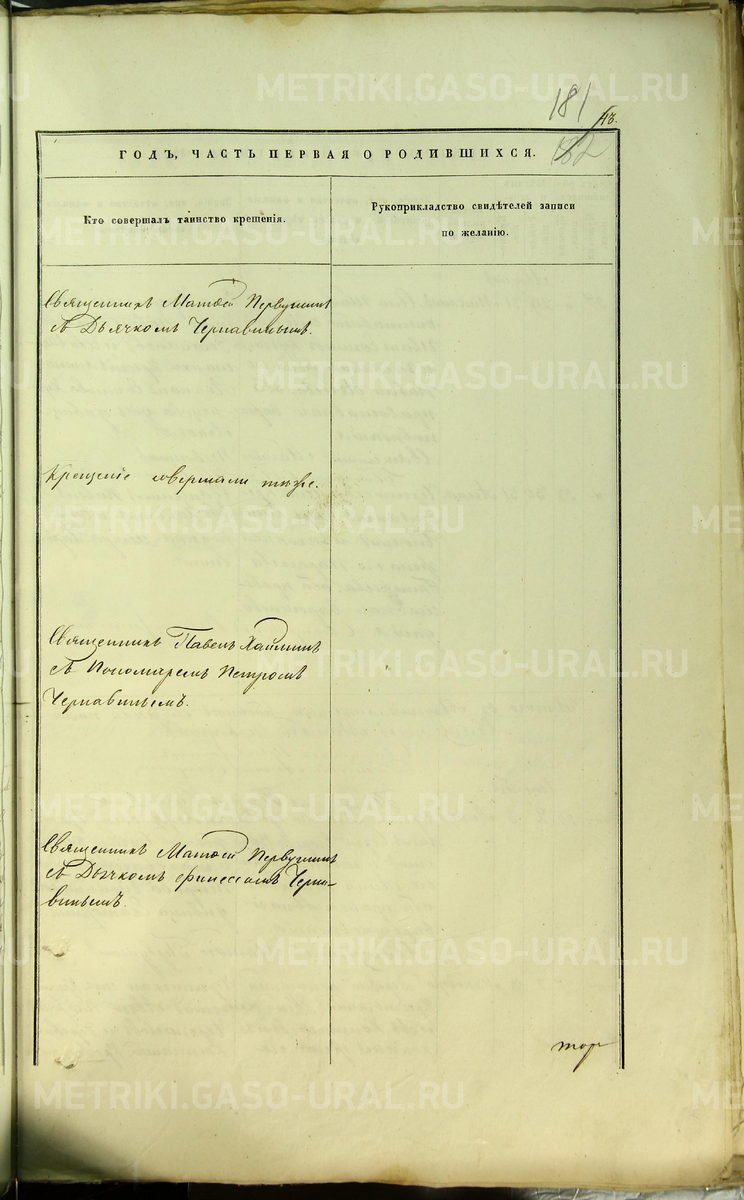 METRIKI.GASO-URAL.RU
181
182
ГОДЪ, ЧАСТЬ ПЕРВАЯ О РОДИВШИХСЯ.
Кто совершалъ таинство крещенія.
Рукоприкладство свидѣтелей записи
по желанію.
Священникъ Матѳей Первушинъ
съ Дьячкомъ Чернавинымъ.
Крещеніе совершали тѣже.
Священникъ Павелъ Хаминъ
съ Пономаремъ Петромъ
Чернавинымъ.
Священникъ Матѳей Первушинъ
съ Дьячкомъ Финеесомъ Черна-
винымъ.